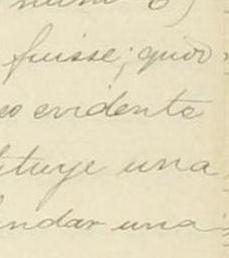 fuisse; quod
eo evidente
tituye una
undar una